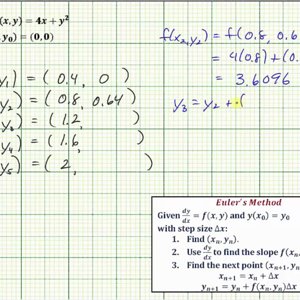 (x, y) = 4x + y²
y₀) = (0,0)
y₁) = ( 0.4, 0 )
y₂) = ( 0.8, 0.64 )
y₃) = ( 1.2, )
y₄) = ( 1.6, )
y₅) = ( 2, )
f(x₂,y₂) = f(0.8, 0.6
= 4(0.8) + (0.
= 3.6096
y₃ = y₂ + (
Euler's Method
Given dy/dx = f(x, y) and y(x₀) = y₀
with step size Δx:
1. Find (xₙ, yₙ).
2. Use dy/dx to find the slope f(xₙ,
3. Find the next point (xₙ₊₁, yₙ
xₙ₊₁ = xₙ + Δx
yₙ₊₁ = yₙ + f(xₙ, yₙ)Δx